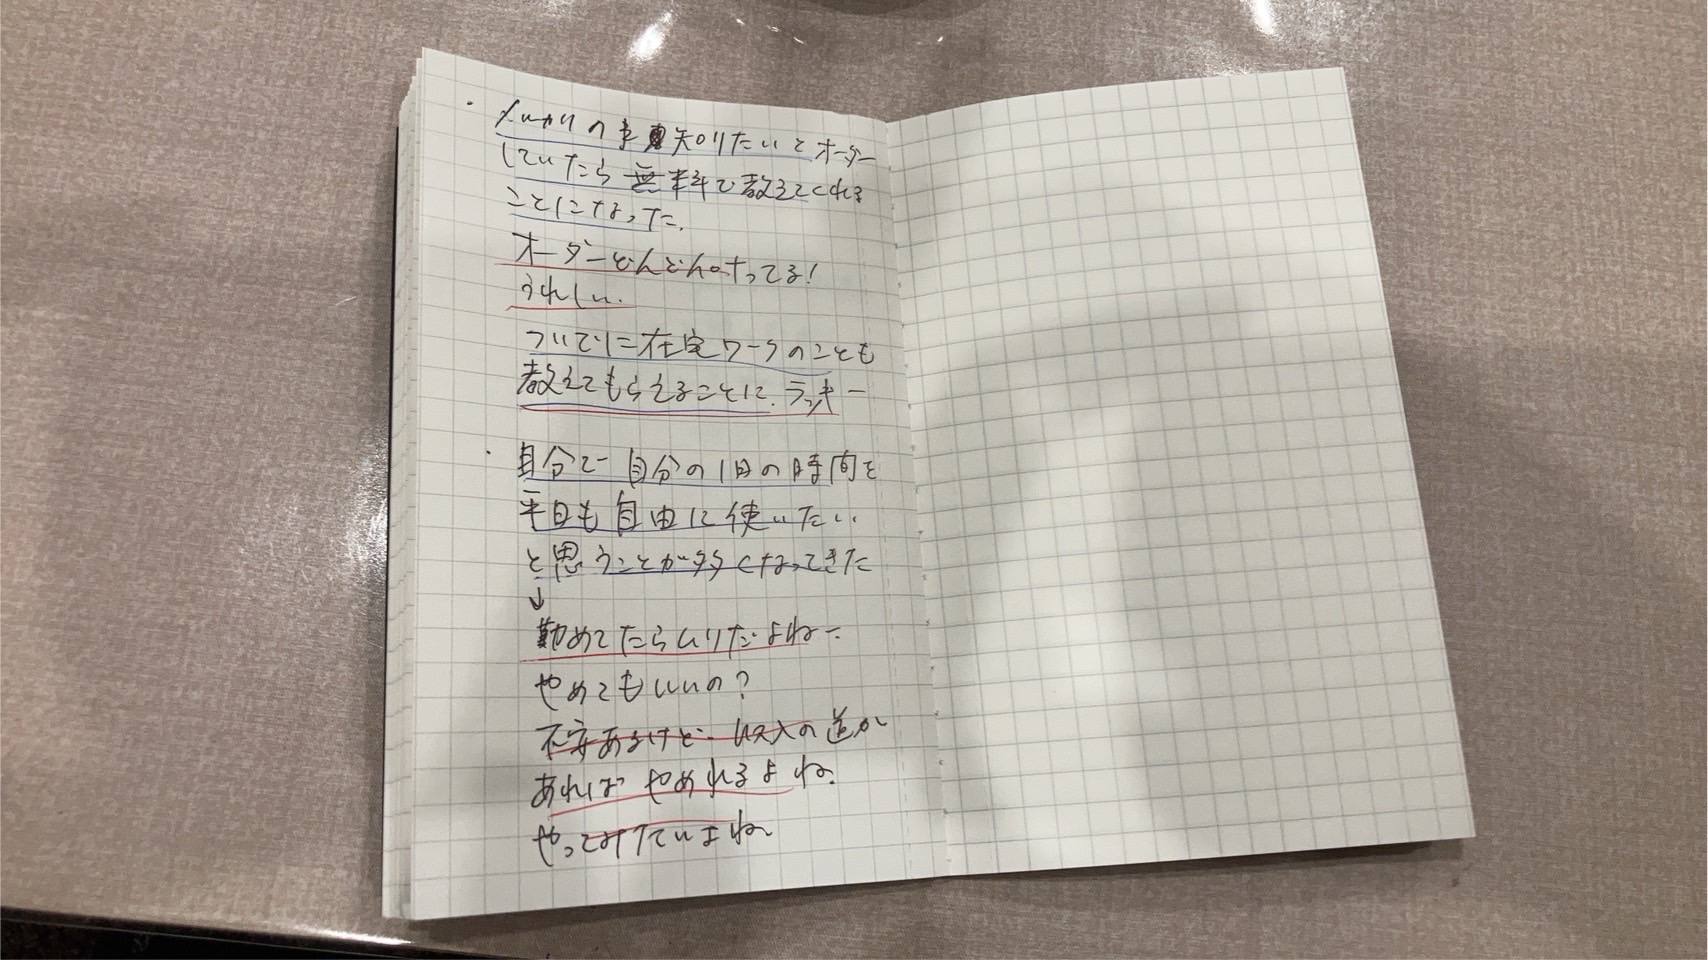 ・メルカリの事知りたいとオーダー
していたら無料で教えてくれる
ことになった。
オーダーどんどん叶ってる!
うれしい。
ついでに在宅ワークのことも
教えてもらえることに。ラッキー
・自分で自分の1日の時間を
平日も自由に使いたい
と思うことが多くなってきた
↓
勤めてたらムリだよねー
やめてもいいの?
不安あるけど収入の道が
あればやめれるよね。
やってみたいよね